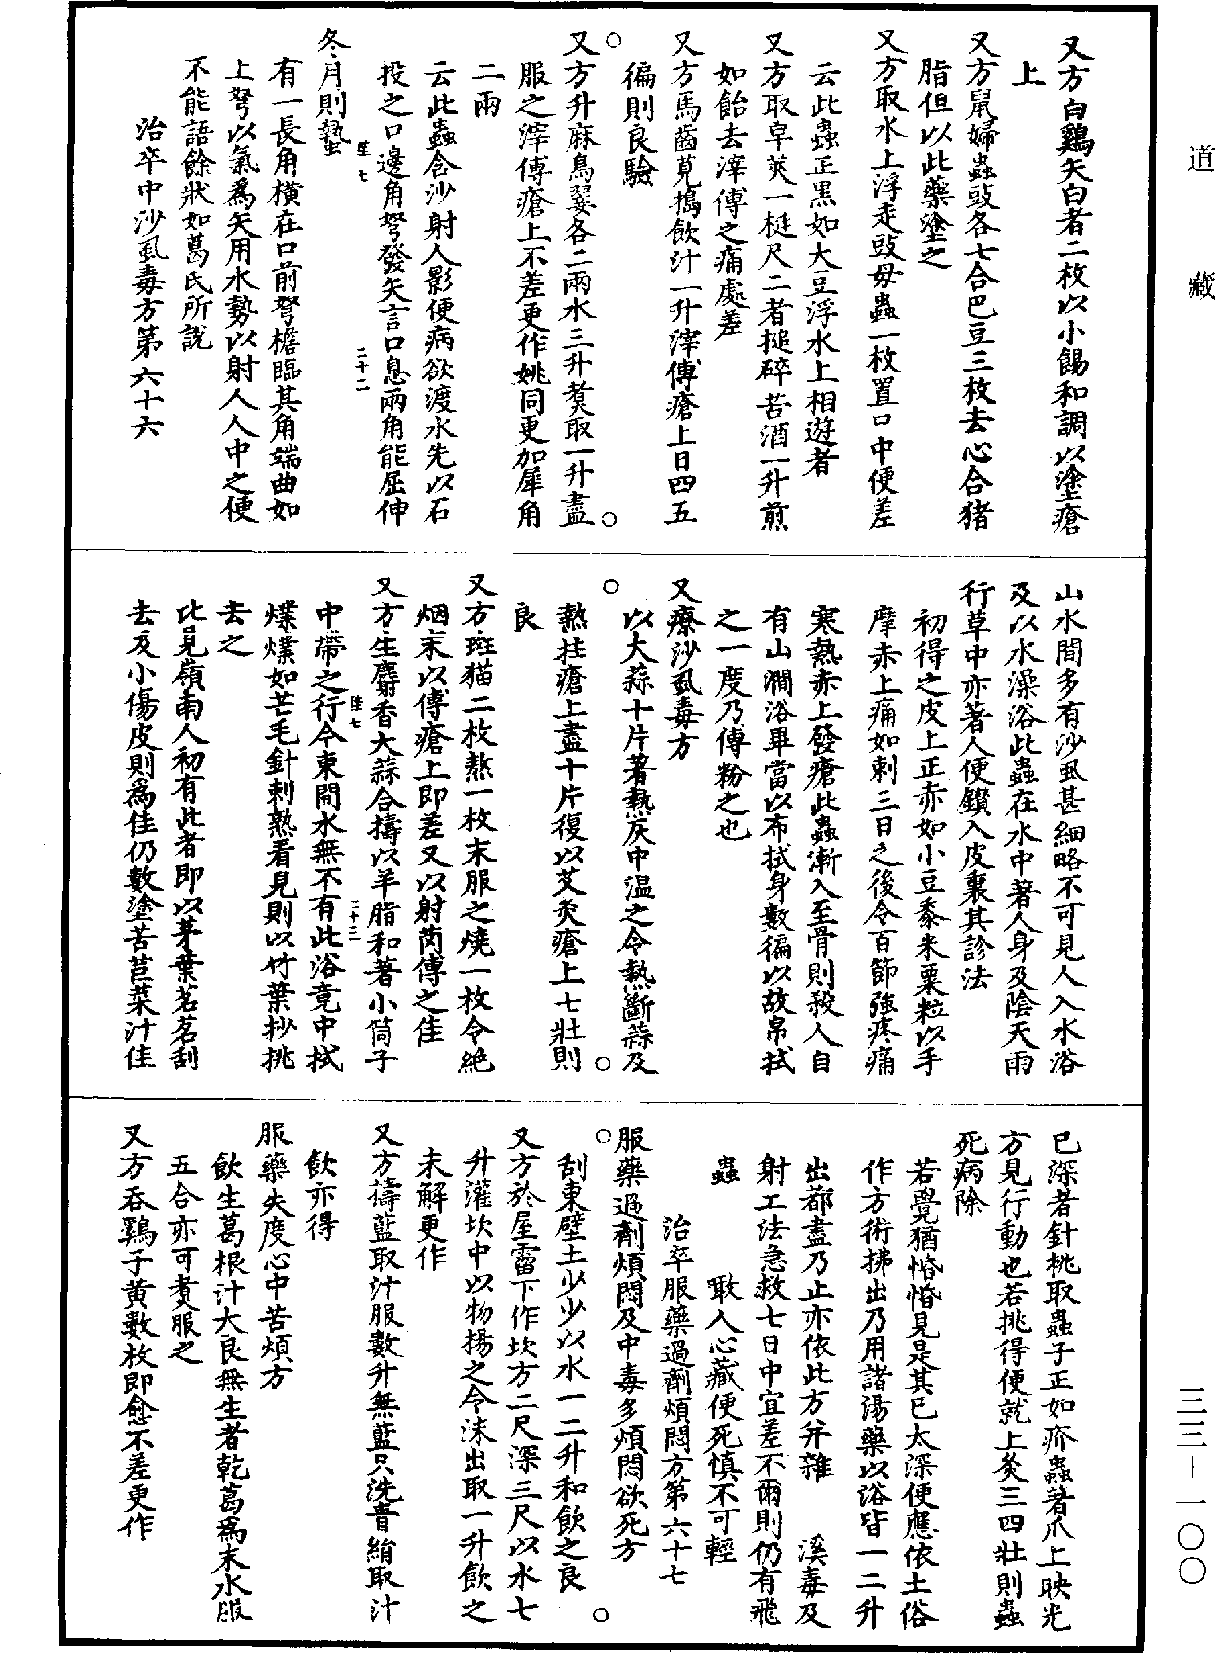 道藏
又方白鷄矢白者二枚以小餳和調以塗瘡
上
又方鼠婦蟲豉各七合巴豆三枚去心合猪
脂但以此藥塗之
又方取水上浮走豉母蟲一枚置口中便差
云此蟲正黑如大豆浮水上相遊者
又方取皁莢一梃尺二者搥碎苦酒一升煎
如飴去滓傅之痛處差
又方馬齒莧搗飲汁一升滓傅瘡上日四五
徧則良驗
又方升麻鳥翣各二兩水三升煑取一升盡
服之滓傅瘡上不差更作姚同更加犀角
二兩
云此蟲含沙射人影便病欲渡水先以石
投之口邊角弩發矢言口息兩角能屈伸
二十二
冬月則蟄
有一長角横在口前弩檐臨其角端曲如
上弩以氣爲矢用水勢以射人人中之便
不能語餘狀如葛氏所説
治卒中沙虱毒方第六十六
山水間多有沙虱甚細略不可見人入水浴
及以水澡浴此蟲在水中著人身及陰天雨
行草中亦著人便鑽入皮裏其診法
初得之皮上正赤如小豆黍米粟粒以手
摩赤上痛如刺三日之後令百節強疼痛
寒熱赤上發瘡此蟲漸入至骨則殺人自
有山澗浴畢當以布拭身數徧以故帛拭
之一度乃傅粉之也
又療沙虱毒方
以大蒜十片著熱灰中温之令熱斷蒜及
熱拄瘡上盡十片復以艾灸瘡上七壯則
良
又方斑猫二枚熬一枚末服之燒一枚令絶
烟末以傅瘡上即差又以射罔傅之佳
又方生麝香大蒜合擣以羊脂和著小筒子
二十三
中帶之行今東間水無不有此浴竟中拭
爍爍如芒毛針刺熟看見則以竹葉抄挑
去之
比見嶺南人初有此者即以茅葉茗茗刮
去及小傷皮則爲佳仍數塗苦苣菜汁佳
已深者針挑取蟲子正如疥蟲著爪上映光
方見行動也若挑得便就上灸三四壯則蟲
死病除
若覺猶惛惛見是其已太深便應依土俗
作方術拂出乃用諸湯藥以浴皆一二升
出都盡乃止亦依此方并雜 溪毒及
射工法急救七日中宜差不爾則仍有飛
蟲 噉人心藏便死慎不可輕
治卒服藥過劑煩悶方第六十七
服藥過劑煩悶及中毒多煩悶欲死方
刮東壁土少少以水一二升和飲之良
又方於屋霤下作坎方二尺深三尺以水七
升灌坎中以物揚之令沫出取一升飲之
未解更作
又方擣藍取汁服數升無藍只洗青絹取汁
飲亦得
服藥失度心中苦煩方
飲生葛根汁大良無生者乾葛爲末水服
五合亦可煑服之
又方吞鷄子黄數枚即愈不差更作
三三-一〇〇